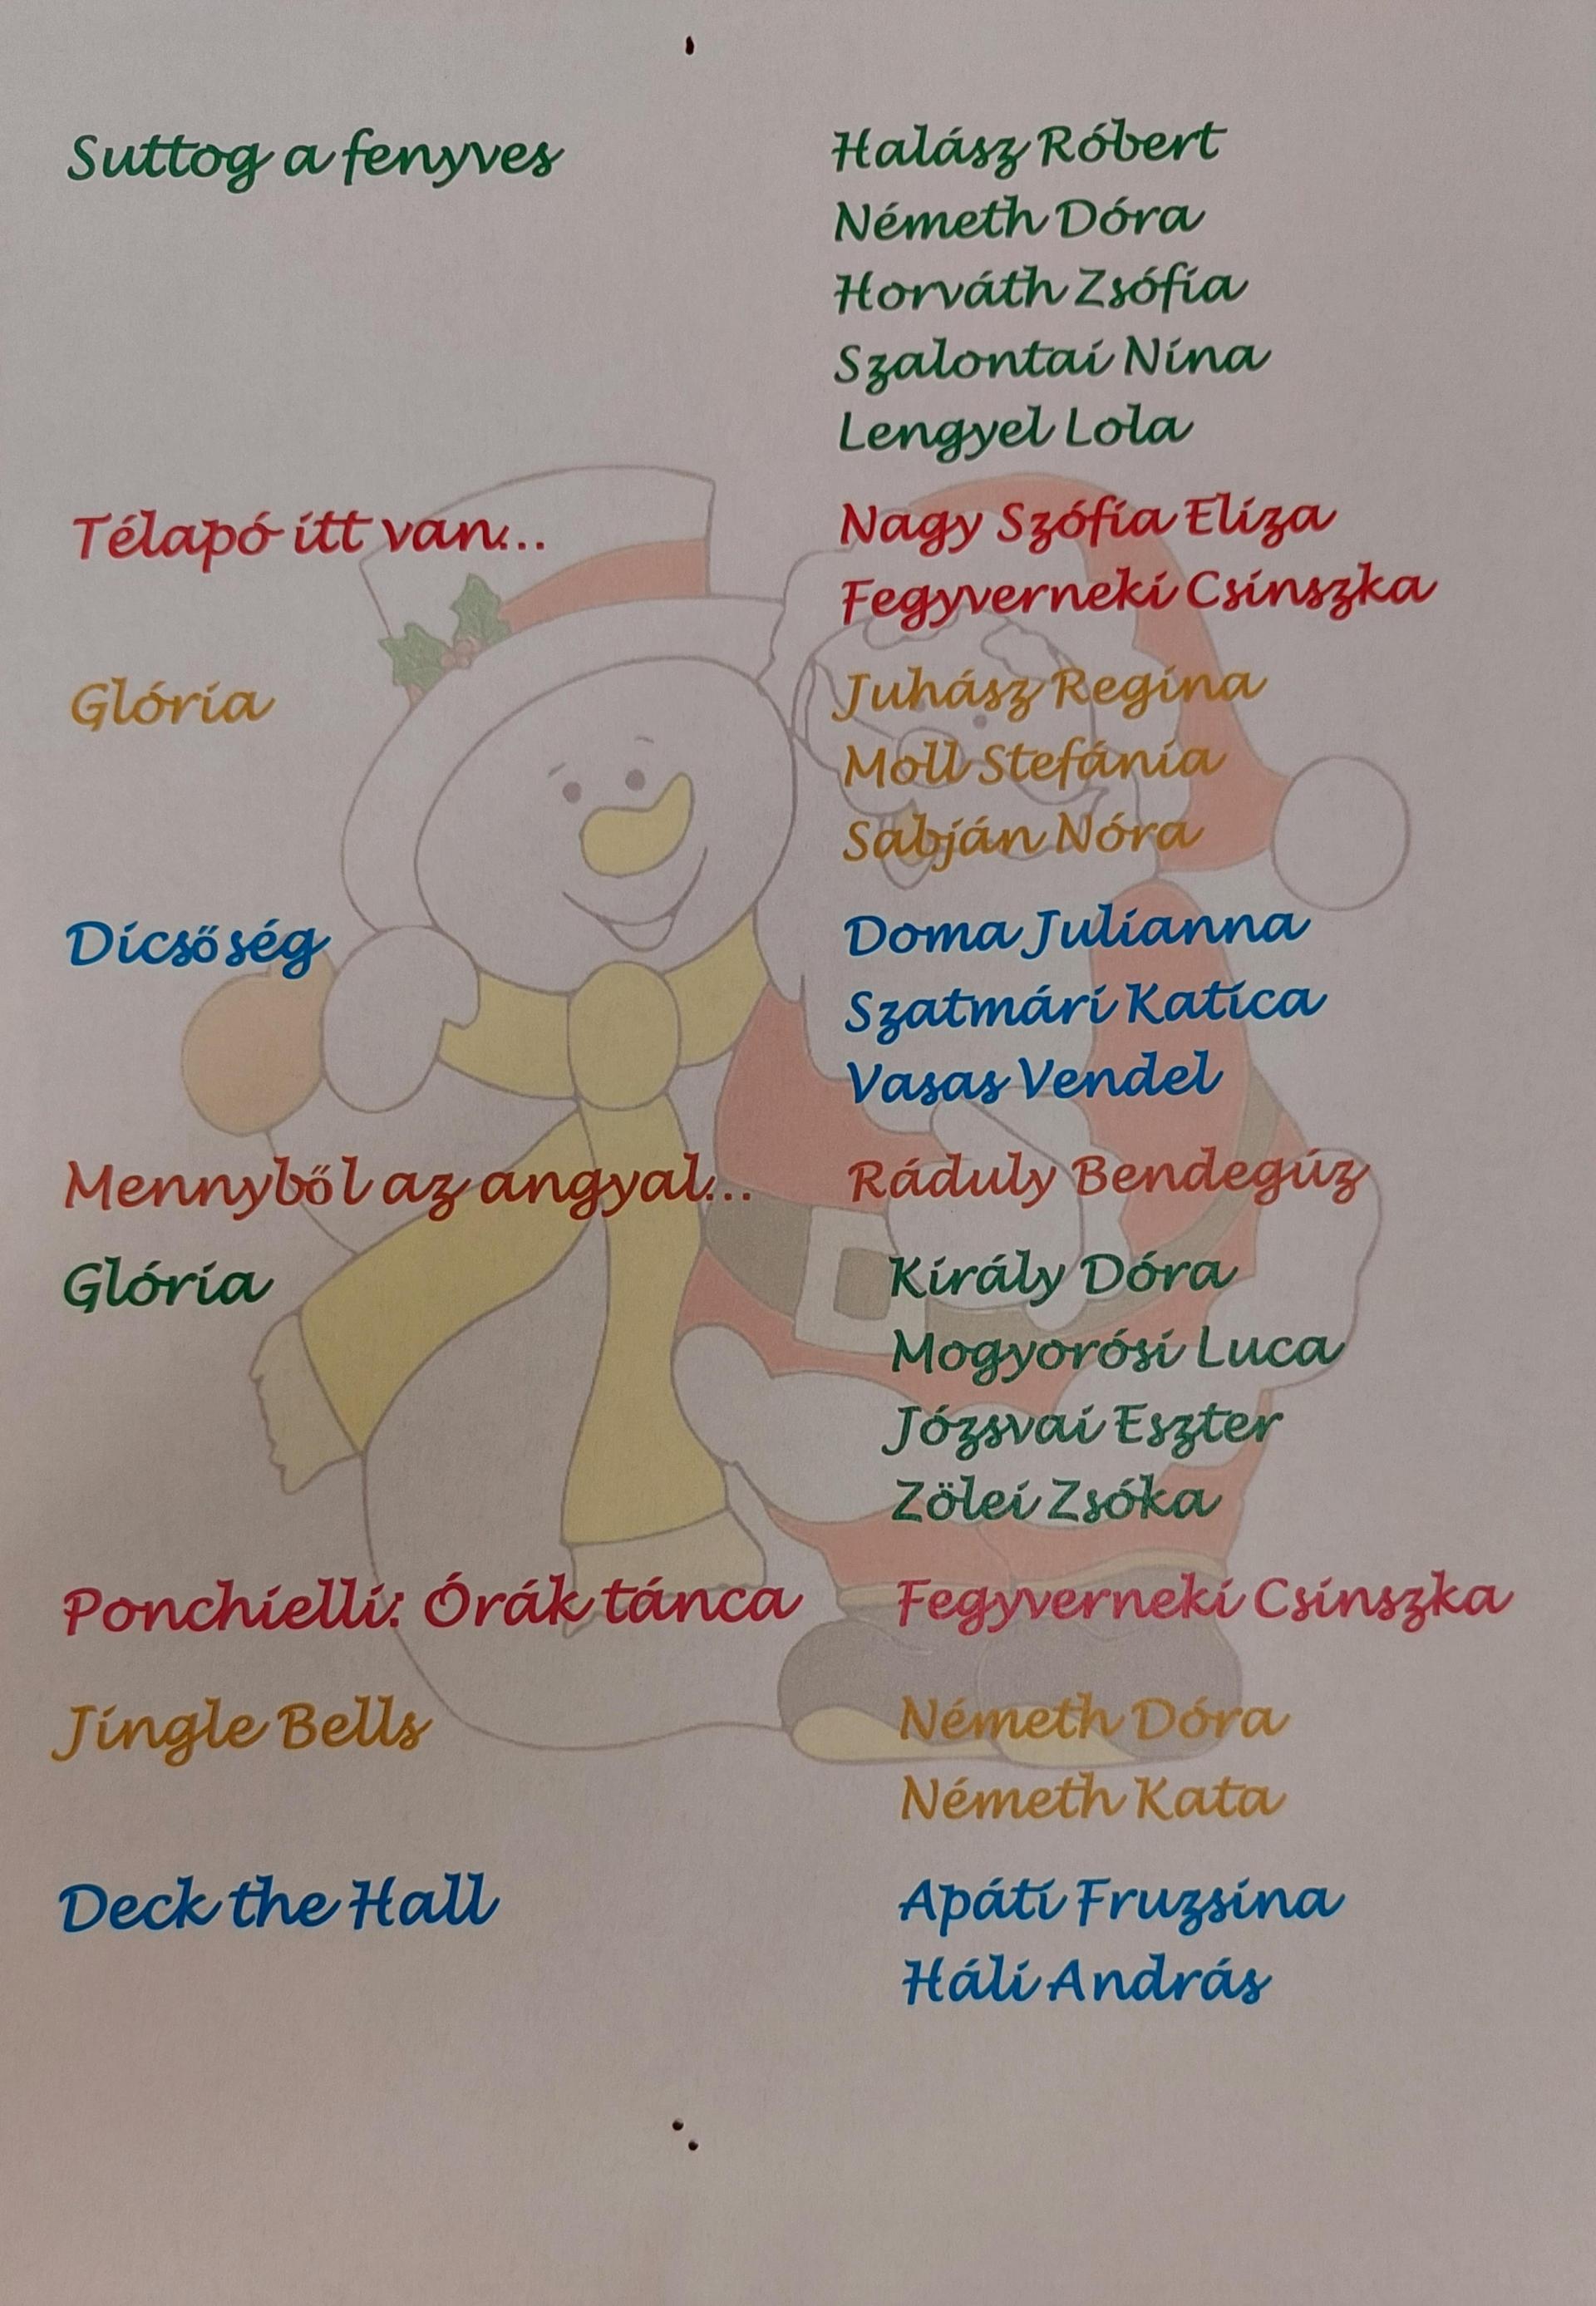 Suttog a fenyves Halász Róbert
Németh Dóra
Horváth Zsófia
Szalontai Nina
Lengyel Lola
Télapó itt van... Nagy Szófia Eliza
Fegyverneki Csinszka
Glória Juhász Regina
Moll Stefánia
Sabján Nóra
Dicsőség Doma Julianna
Szatmári Katica
Vasas Vendel
Mennyből az angyal... Ráduly Bendegúz
Glória Király Dóra
Mogyorósi Luca
Józsvai Eszter
Zölei Zsóka
Ponchielli: Órák tánca Fegyverneki Csinszka
Jingle Bells Németh Dóra
Németh Kata
Deck the Hall Apáti Fruzsina
Háli András